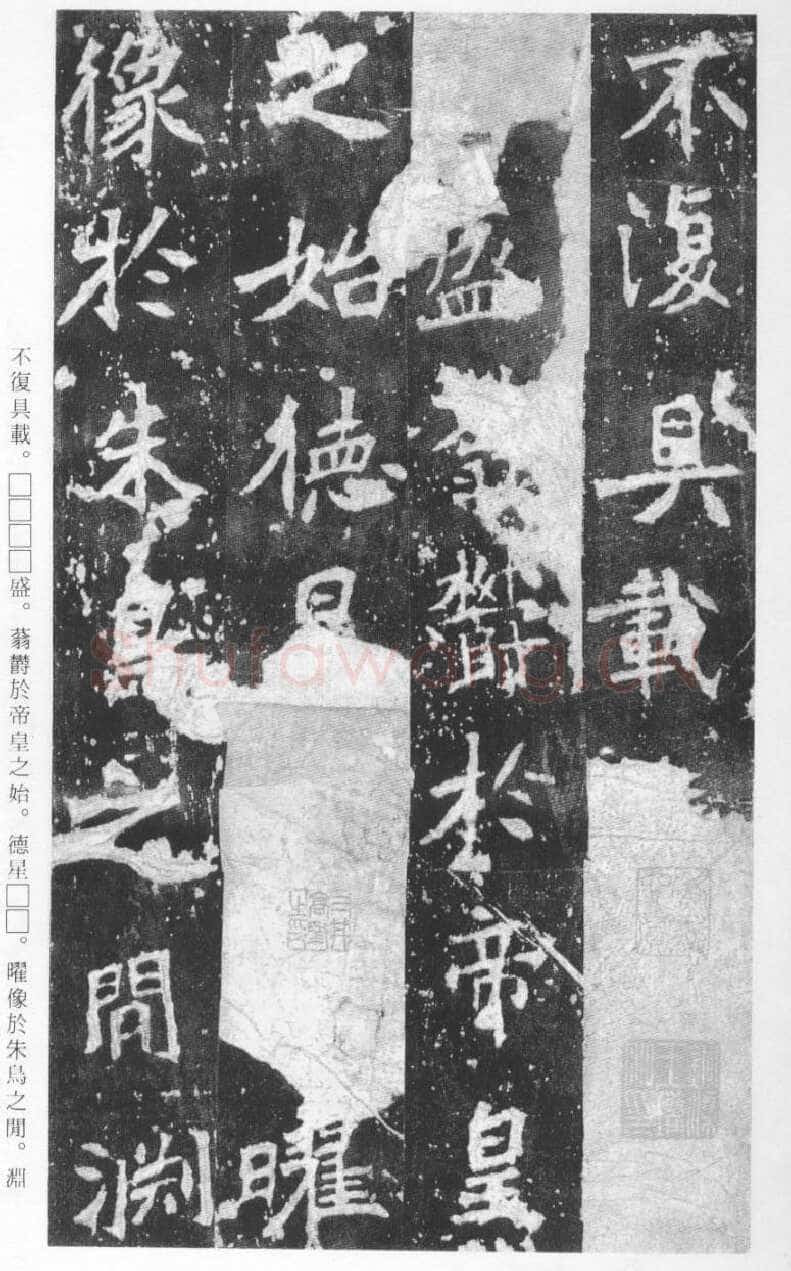 不復具載
盛
欝於帝皇
之始德星
曜
像於朱鳥之間淵
不復具載。□□□□盛。蓊欝於帝皇之始。德星□□。曜像於朱鳥之閒。淵
shufawang.cn